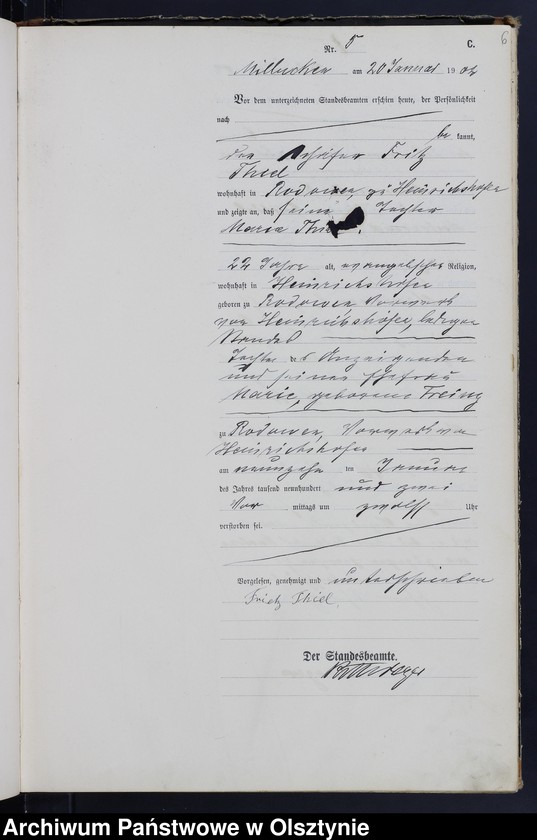 6
Nr. 5 C.
am 20 Januar 1902
Vor dem unterzeichneten Standesbeamten erschien heute, der Persönlichkeit
nach
be kannt,
der Schäfer Fritz
Thiel
wohnhaft in Rodowen, zu Heinrichshöfen
und zeigte an, daß seine Tochter
Maria Thiel,
22 Jahre alt, evangelischer Religion,
wohnhaft in Heinrichshöfen
geboren zu Rodowen Vorwerk
von Heinrichshöfen, ledigen
Standes
Tochter des Anzeigenden
und seiner Ehefrau
Marie, geborene
zu Rodowen, Vorwerk von
Heinrichshöfen
am neunzehn ten Januar
des Jahres tausend neunhundert und zwei
Vor mittags um zwölf Uhr
verstorben sei.
Vorgelesen, genehmigt und unterschrieben
Fritz Thiel.
Der Standesbeamte.
Archiwum Państwowe w Olsztynie